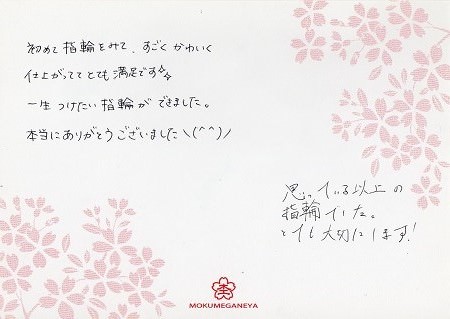 初めて指輪をみて、すごくかわいく
仕上がっててとても満足です✨
一生つけたい指輪ができました。
本当にありがとうございました＼(^^)／
思っている以上の
指輪でした。
とても大切にします!
MOKUMEGANEYA